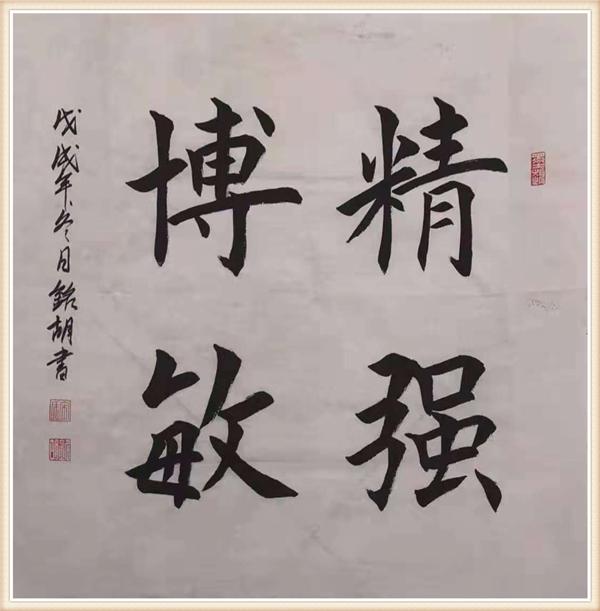 精强
博敏
戊戌年冬月铭胡书